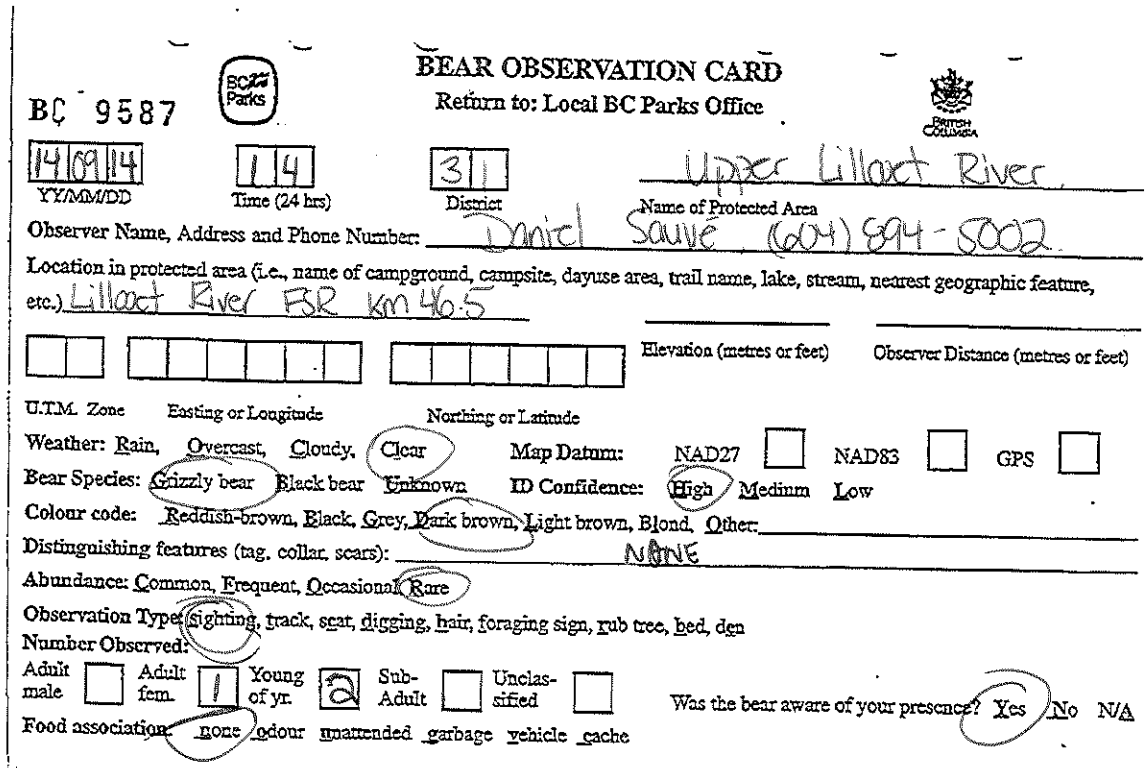 BEAR OBSERVATION CARD
BC Parks
Return to: Local BC Parks Office
BC 9587
BRITISH COLUMBIA
14 09 14 14 31 Upper Lillooet River
YY/MM/DD Time (24 hrs) District Name of Protected Area
Observer Name, Address and Phone Number: Daniel Sauvé (604) 894-5002
Location in protected area (i.e., name of campground, campsite, dayuse area, trail name, lake, stream, nearest geographic feature,
etc.) Lillooet River FSR km 46.5
Elevation (metres or feet) Observer Distance (metres or feet)
U.T.M. Zone Easting or Longitude Northing or Latitude
Weather: Rain, Overcast, Cloudy, Clear Map Datum: NAD27 NAD83 GPS
Bear Species: Grizzly bear Black bear Unknown ID Confidence: High Medium Low
Colour code: Reddish-brown, Black, Grey, Dark brown, Light brown, Blond, Other:
Distinguishing features (tag, collar, scars): NONE
Abundance: Common, Frequent, Occasional Rare
Observation Type: sighting, track, scat, digging, hair, foraging sign, rub tree, bed, den
Number Observed:
Adult male Adult fem. 1 Young of yr. 2 Sub-Adult Unclas-sified Was the bear aware of your presence? Yes No N/A
Food association: none odour unattended garbage vehicle cache